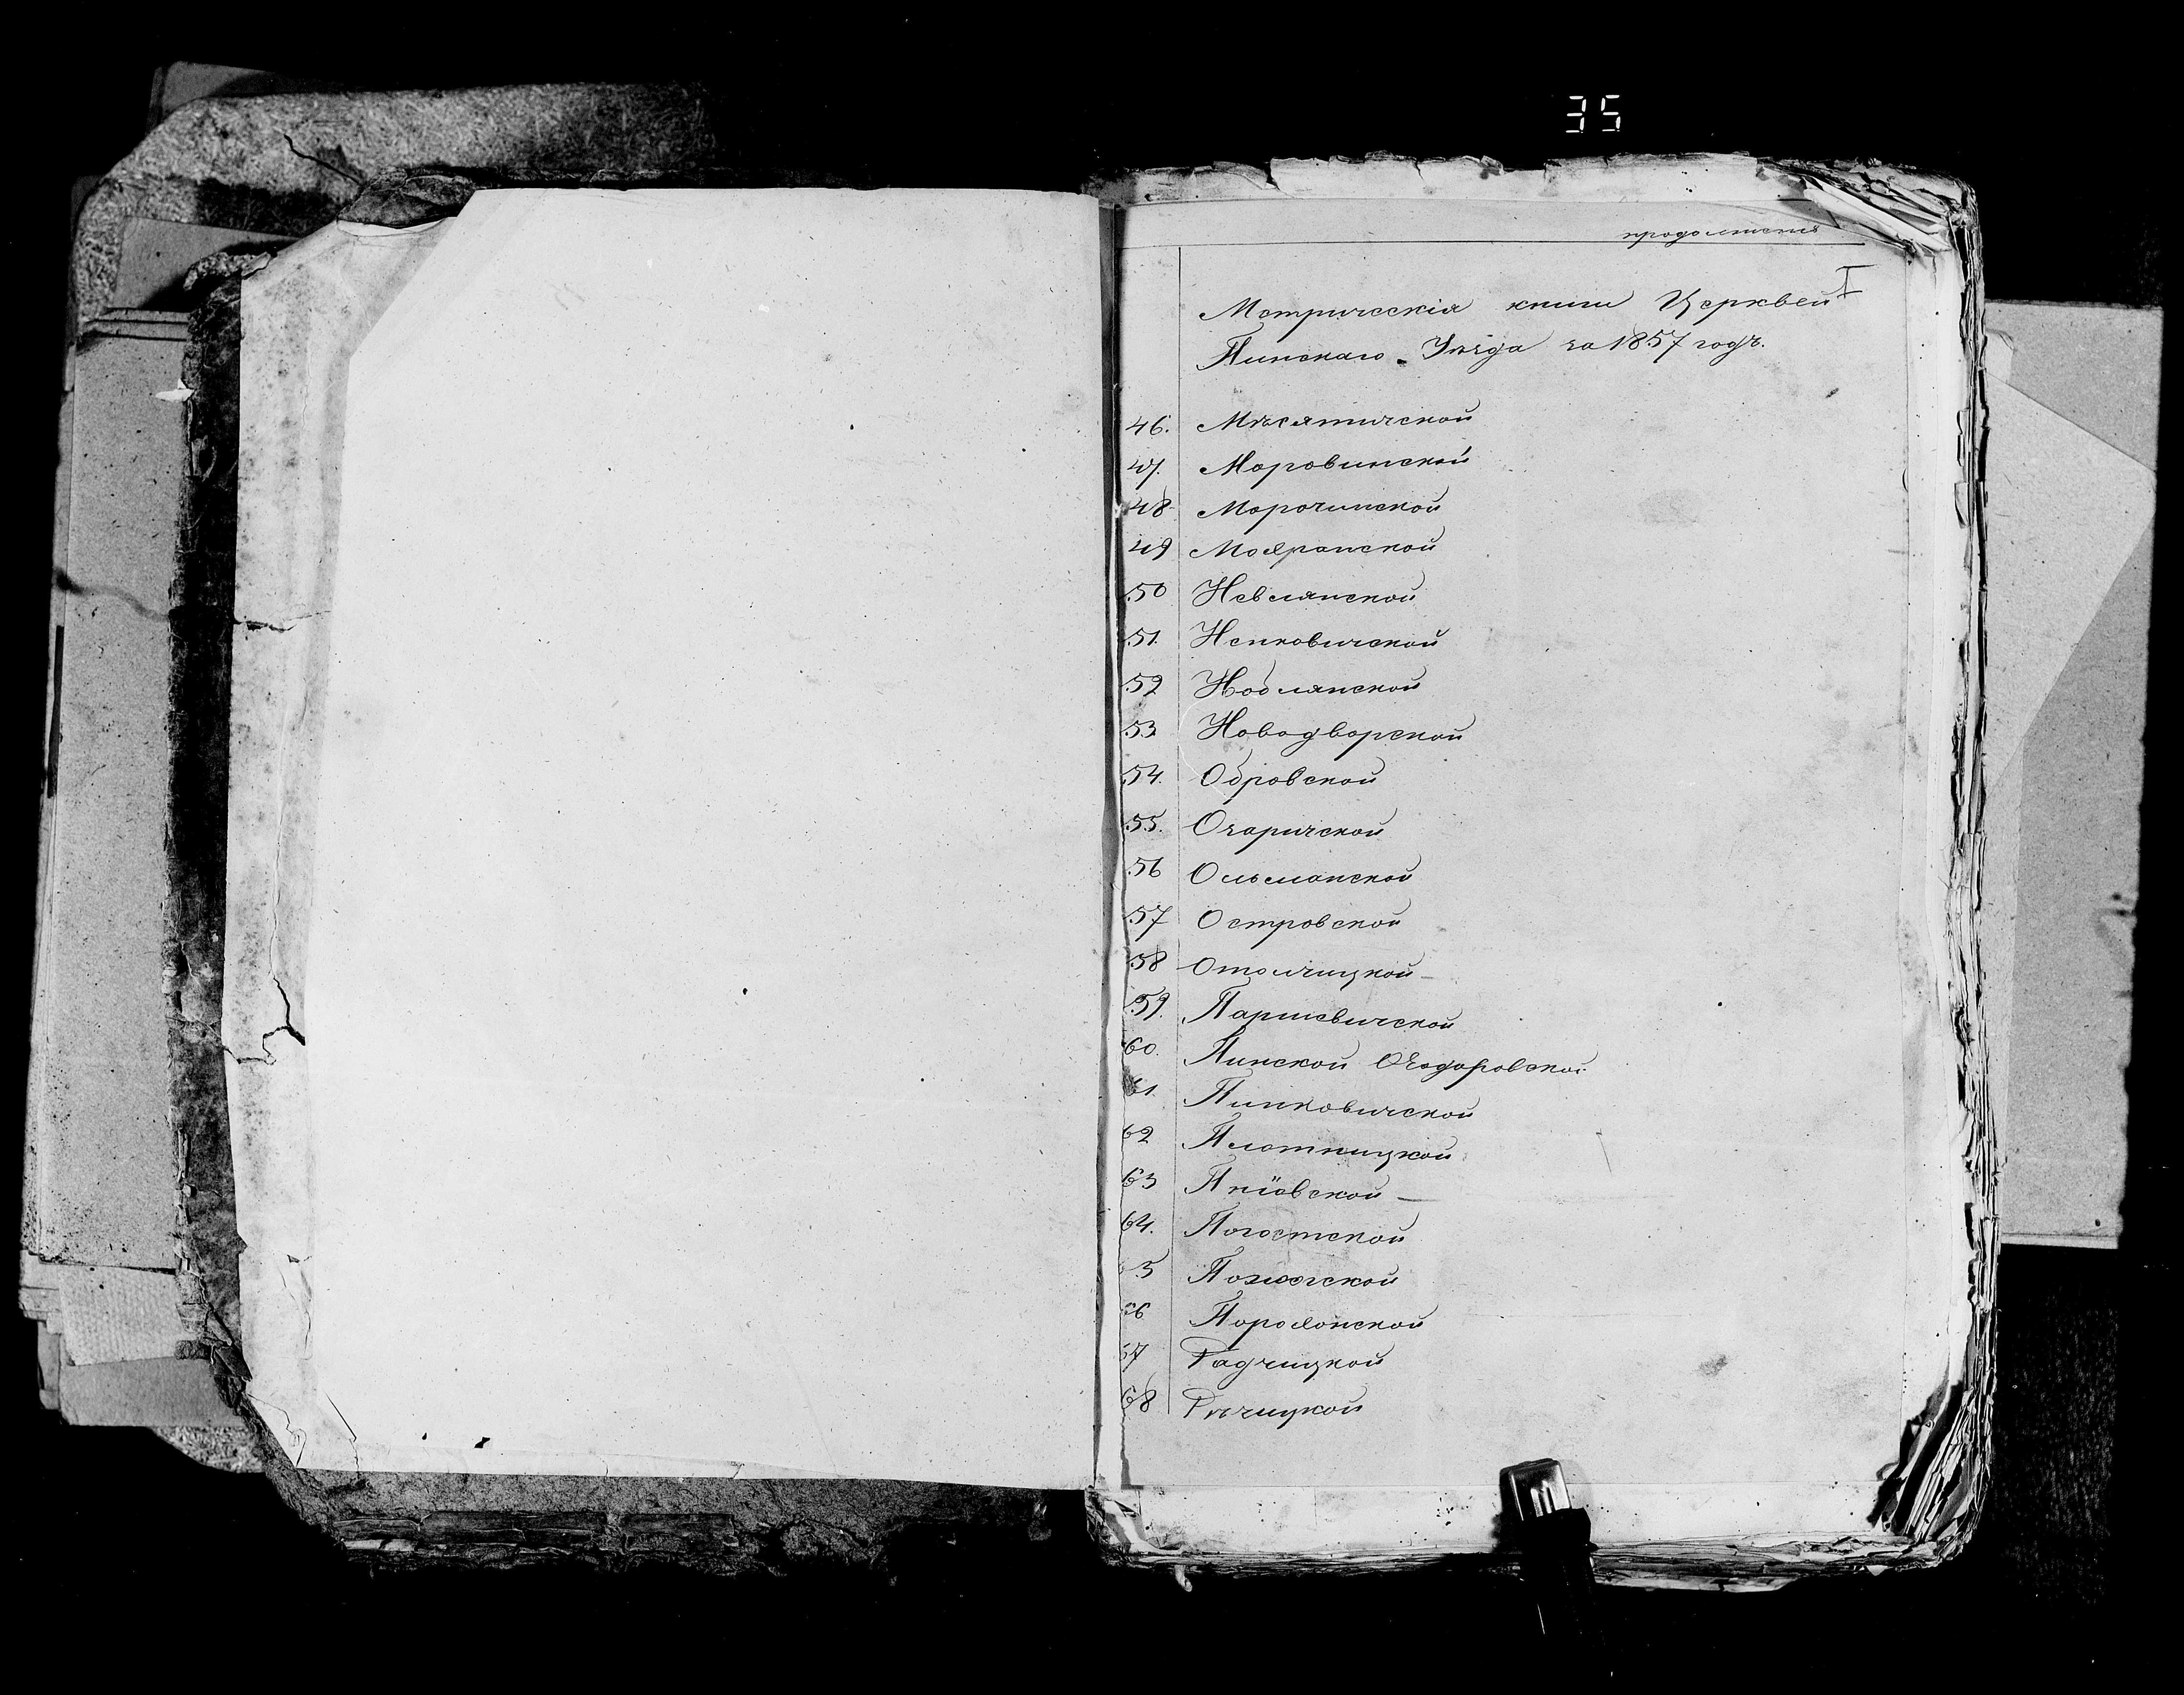 35
продолженіе
I
Метрическія книги Церквей
Пинскаго Уѣзда за 1857 годъ.
46. Мѣсятичской
47. Моровинской
48 Морочинской
49 Мохранской
50 Невлянской
51. Непковичской
52 Ноблянской
53 Новодворской
54. Обровской
55. Озаричской
56 Ольманской
57 Островской
58 Отолчицкой
59. Паршевичской
60. Пинской Ѳеодоровской
61. Пинковичской
62 Плотницкой
63 Пніовской
64. Погостской
65 Пожогской
66 Порохонской
67 Радчицкой
68 Рѣчицкой